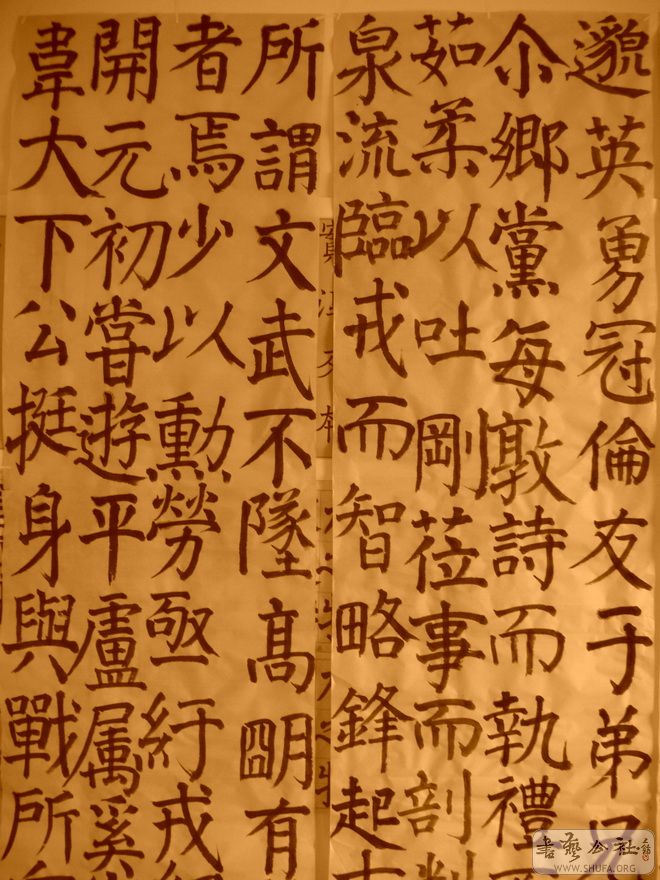 邈英勇冠倫友于弟兄
尒鄉黨每敦詩而執禮
茹柔以吐剛莅事而剖判
泉流臨戎而智略鋒起
所謂文武不墜高朙有
者焉少以勳勞亟紆戎
開元初嘗遊平盧属奚
韋大下公挺身與戰所
書藝公社
WWW.SHUFA.ORG